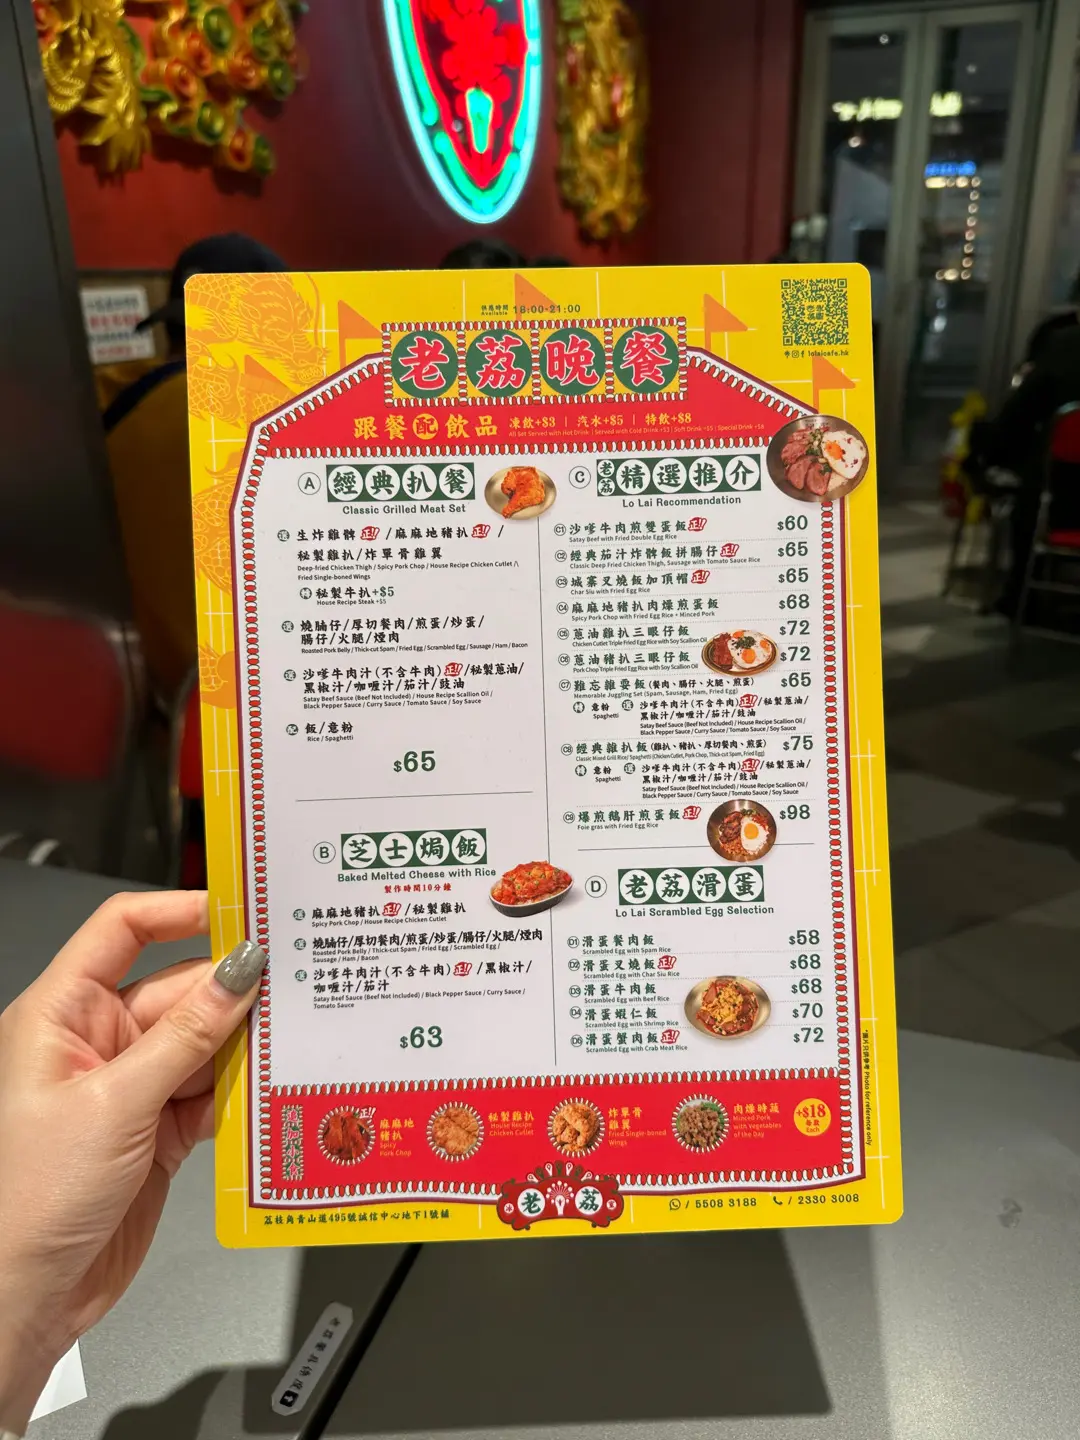 供應時間
Available
18:00-21:00
lolaicafe.hk
老荔晚餐
跟餐配飲品
凍飲+$3 | 汽水+$5 | 特飲+$8
A 經典扒餐
Classic Grilled Meat Set
選 生炸雞髀 正!! /麻麻地豬扒 正!! /
秘製雞扒/炸單骨雞翼
Deep-fried Chicken Thigh / Spicy Pork Chop / House Recipe Chicken Cutlet /
Fried Single-boned Wings
轉 秘製牛扒+$5
House Recipe Steak +$5
選 燒腩仔/厚切餐肉/煎蛋/炒蛋/
腸仔/火腿/煙肉
Roasted Pork Belly / Thick-cut Spam / Fried Egg / Scrambled Egg / Sausage / Ham / Bacon
選 沙嗲牛肉汁(不含牛肉) 正!! /秘製蔥油/
黑椒汁/咖喱汁/茄汁/豉油
Satay Beef Sauce (Beef Not Included) / House Recipe Scallion Oil /
Black Pepper Sauce / Curry Sauce / Tomato Sauce / Soy Sauce
配 飯/意粉
Rice / Spaghetti
$65
B 芝士焗飯
Baked Melted Cheese with Rice
製作時間10分鐘
選 麻麻地豬扒 正!! /秘製雞扒
Spicy Pork Chop / House Recipe Chicken Cutlet
選 燒腩仔/厚切餐肉/煎蛋/炒蛋/腸仔/火腿/煙肉
Roasted Pork Belly / Thick-cut Spam / Fried Egg / Scrambled Egg /
Sausage / Ham / Bacon
選 沙嗲牛肉汁(不含牛肉) 正!! /黑椒汁/
咖喱汁/茄汁
Satay Beef Sauce (Beef Not Included) / Black Pepper Sauce / Curry Sauce /
Tomato Sauce
$63
C 老荔精選推介
Lo Lai Recommendation
C1 沙嗲牛肉煎雙蛋飯 正!! $60
Satay Beef with Fried Double Egg Rice
C2 經典茄汁炸髀飯拼腸仔 正!! $65
Classic Deep Fried Chicken Thigh, Sausage with Tomato Sauce Rice
C3 城寨叉燒飯加頂帽 正!! $65
Char Siu with Fried Egg Rice
C4 麻麻地豬扒肉燥煎蛋飯 $68
Spicy Pork Chop with Fried Egg Rice + Minced Pork
C5 蔥油雞扒三眼仔飯 $72
Chicken Cutlet Triple Fried Egg Rice with Soy Scallion Oil
C6 蔥油豬扒三眼仔飯 $72
Pork Chop Triple Fried Egg Rice with Soy Scallion Oil
C7 難忘雜耍飯(餐肉、腸仔、火腿、煎蛋) $65
Memorable Juggling Set (Spam, Sausage, Ham, Fried Egg)
轉 意粉 選 沙嗲牛肉汁(不含牛肉) 正!! /秘製蔥油/
Spaghetti
黑椒汁/咖喱汁/茄汁/豉油
Satay Beef Sauce (Beef Not Included) / House Recipe Scallion Oil /
Black Pepper Sauce / Curry Sauce / Tomato Sauce / Soy Sauce
C8 經典雜扒飯(雞扒、豬扒、厚切餐肉、煎蛋) $75
Classic Mixed Grill Rice/ Spaghetti (Chicken Cutlet, Pork Chop, Thick-cut Spam, Fried Egg)
轉 意粉 選 沙嗲牛肉汁(不含牛肉) 正!! /秘製蔥油/
Spaghetti
黑椒汁/咖喱汁/茄汁/豉油
Satay Beef Sauce (Beef Not Included) / House Recipe Scallion Oil /
Black Pepper Sauce / Curry Sauce / Tomato Sauce / Soy Sauce
C9 爆煎鵝肝煎蛋飯 正!! $98
Foie gras with Fried Egg Rice
D 老荔滑蛋
Lo Lai Scrambled Egg Selection
D1 滑蛋餐肉飯 $58
Scrambled Egg with Spam Rice
D2 滑蛋叉燒飯 正!! $68
Scrambled Egg with Char Siu Rice
D3 滑蛋牛肉飯 $68
Scrambled Egg with Beef Rice
D4 滑蛋蝦仁飯 $70
Scrambled Egg with Shrimp Rice
D5 滑蛋蟹肉飯 正!! $72
Scrambled Egg with Crab Meat Rice
追加小食
正!!
麻麻地
豬扒
Spicy
Pork Chop
秘製雞扒
House Recipe
Chicken Cutlet
炸單骨
雞翼
Fried Single-boned
Wings
肉燥時蔬
Minced Pork
with Vegetables
of the Day
+$18
每款
Each
*圖片只供參考 Photo for reference only
老荔
荔枝角青山道495號誠信中心地下1號舖
/ 5508 3188
/ 2330 3008